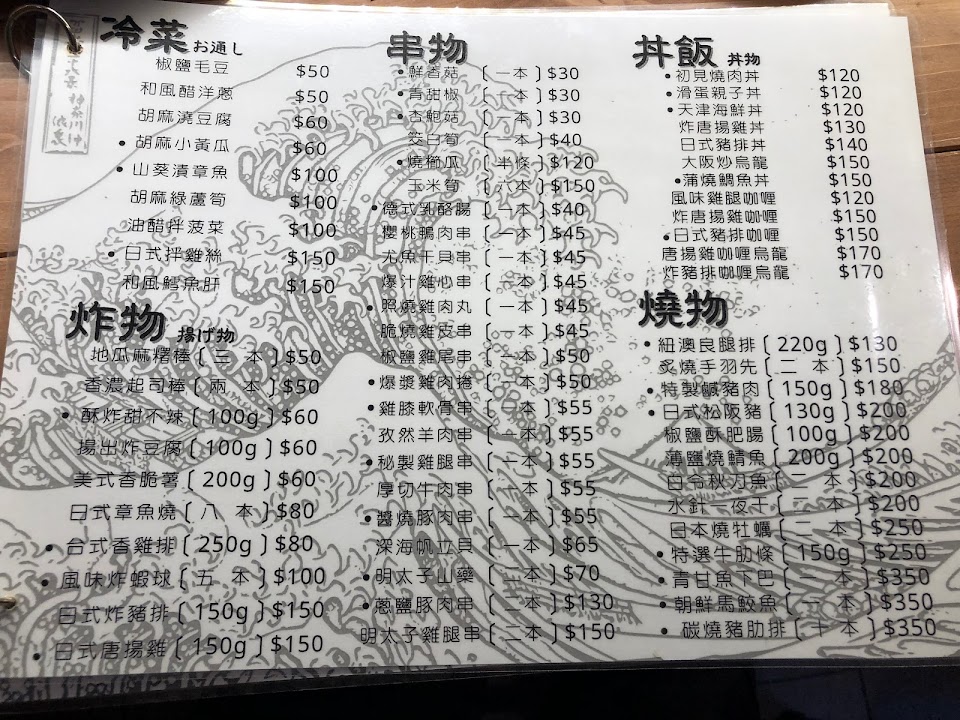 冷菜 お通し
椒鹽毛豆 $50
和風醋洋蔥 $50
胡麻澆豆腐 $60
• 胡麻小黃瓜 $60
• 山葵漬章魚 $100
胡麻綠蘆筍 $100
油醋拌菠菜 $100
• 日式拌雞絲 $150
和風鱈魚肝 $150
炸物 揚げ物
地瓜麻糬棒〔三 本〕$50
香濃起司棒〔兩 本〕$50
• 酥炸甜不辣〔100g〕$60
揚出炸豆腐〔100g〕$60
美式香脆薯〔200g〕$60
日式章魚燒〔八 本〕$80
• 台式香雞排〔250g〕$80
• 風味炸蝦球〔五 本〕$100
日式炸豬排〔150g〕$150
• 日式唐揚雞〔150g〕$150
串物
• 鮮香菇〔一本〕$30
• 青甜椒〔一本〕$30
• 杏鮑菇〔一本〕$30
筊白筍〔一本〕$40
• 燒櫛瓜〔半條〕$120
玉米筍〔六本〕$150
• 德式乳酪腸〔一本〕$40
櫻桃鴨肉串〔一本〕$45
尤魚干貝串〔一本〕$45
爆汁雞心串〔一本〕$45
• 照燒雞肉丸〔一本〕$45
脆燒雞皮串〔一本〕$45
椒鹽雞尾串〔一本〕$50
• 爆漿雞肉捲〔一本〕$50
• 雞膝軟骨串〔一本〕$55
孜然羊肉串〔一本〕$55
• 秘製雞腿串〔一本〕$55
厚切牛肉串〔一本〕$55
• 醬燒豚肉串〔一本〕$55
深海帆立貝〔一本〕$65
• 明太子山藥〔二本〕$70
• 蔥鹽豚肉串〔二本〕$130
明太子雞腿串〔二本〕$150
丼飯 丼物
• 初見燒肉丼 $120
• 滑蛋親子丼 $120
• 天津海鮮丼 $120
炸唐揚雞丼 $130
日式豬排丼 $140
大阪炒烏龍 $150
• 蒲燒鯛魚丼 $150
風味雞腿咖喱 $120
炸唐揚雞咖喱 $150
• 日式豬排咖喱 $150
唐揚雞咖喱烏龍 $170
炸豬排咖喱烏龍 $170
燒物
• 紐澳良腿排〔220g〕$130
炙燒手羽先〔二 本〕$150
• 特製鹹豬肉〔150g〕$180
• 日式松阪豬〔130g〕$200
椒鹽酥肥腸〔100g〕$200
薄鹽燒鯖魚〔200g〕$200
白令秋刀魚〔二 本〕$200
水針一夜干〔二 本〕$200
日本燒牡蠣〔二 本〕$250
• 特選牛肋條〔150g〕$250
• 青甘魚下巴〔一 本〕$350
• 朝鮮馬鮫魚〔一 本〕$350
• 碳燒豬肋排〔十 本〕$350